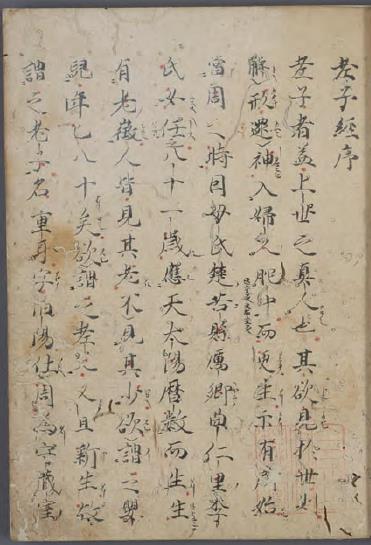 老子經序
老子者蓋上世之真人也其欲見於世則
解形還神入婦人胞中而更生示有所始
當周之時因母氏楚苦縣厲鄉曲仁里李
氏女任之八十一歲應天太陽曆數而生生
有老徵人皆見其老不見其少欲謂之嬰
兒年已八十矣欲謂之老父又且新生故
謂之老子名重耳字伯陽仕周為守藏室